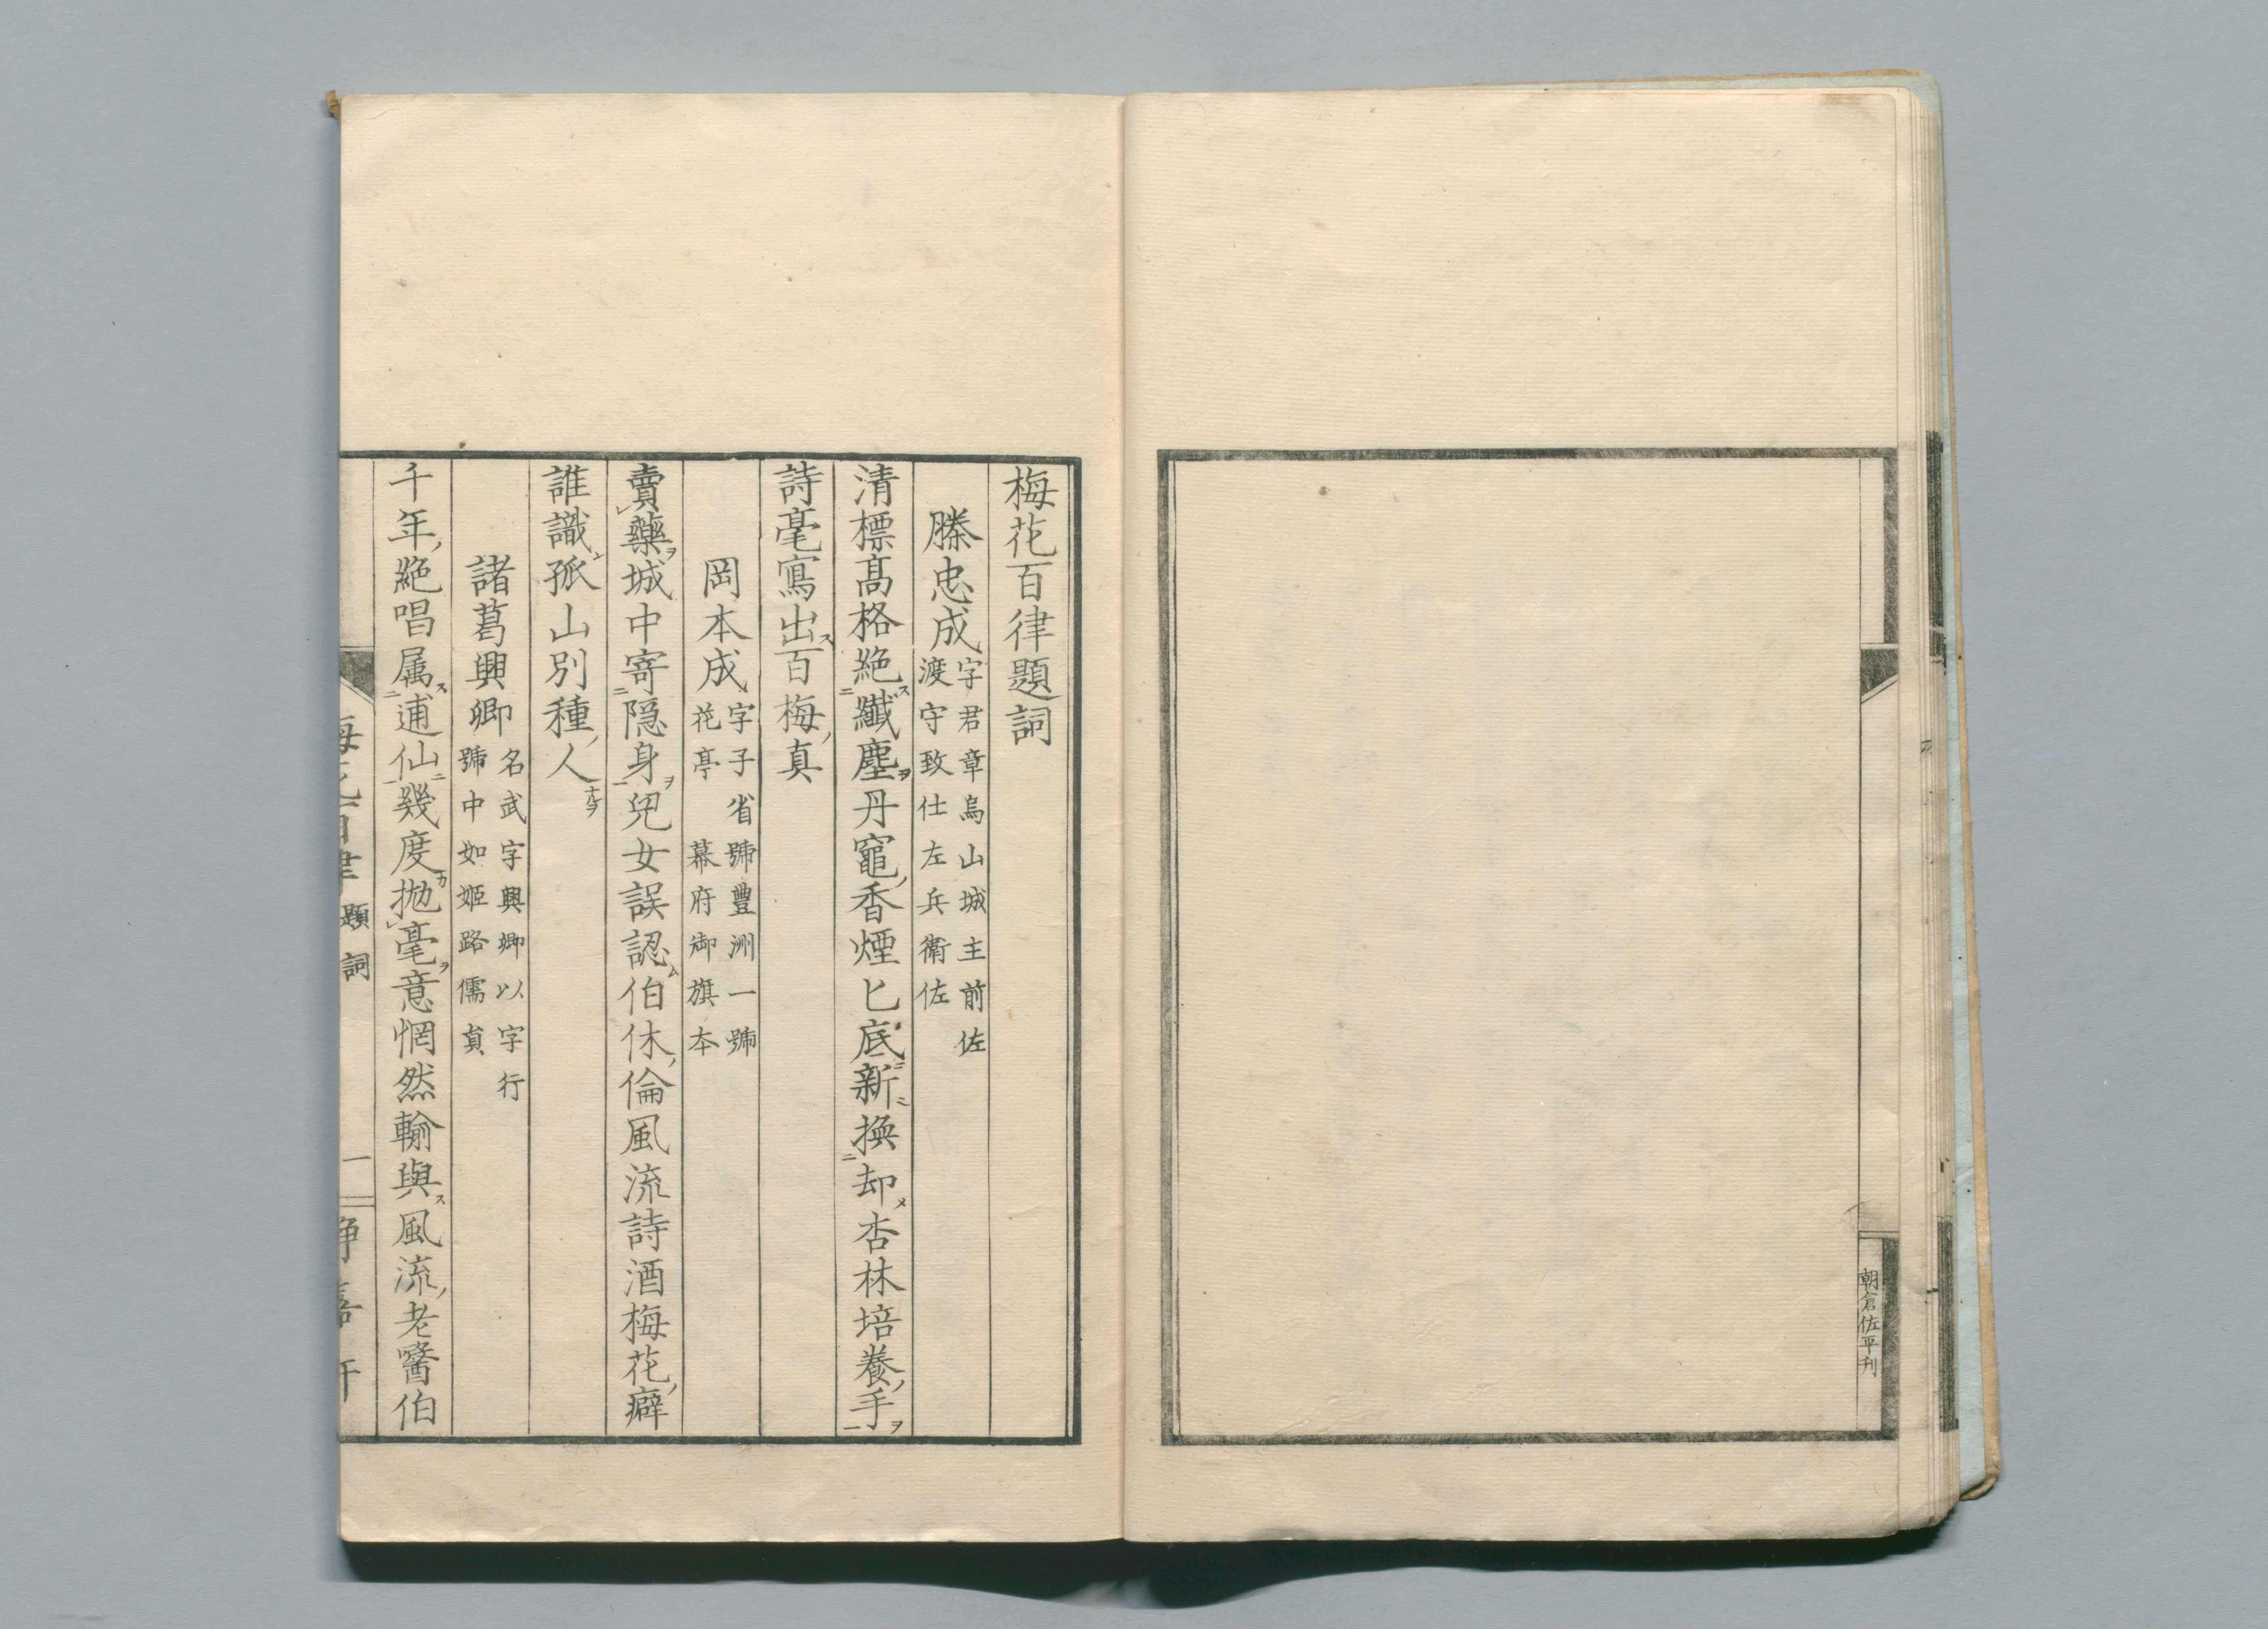 朝倉佐平刊
梅花百律題詞
滕忠成 字君章烏山城主前佐
渡守致仕左兵衛佐
清標髙格絶纖塵丹竈香煙匕底新換却杏林培養手
詩毫寫出百梅真
岡本成 字子省號豊洲一號
花亭 幕府御旗本
賣藥城中寄隐身兒女誤認伯休倫風流詩酒梅花癖
誰識孤山別種人
諸葛興卿 名武字興卿以字行
號中如姬路儒貟
千年絶唱属逋仙幾度拋毫意惘然輸與風流老醫伯
題詞 一